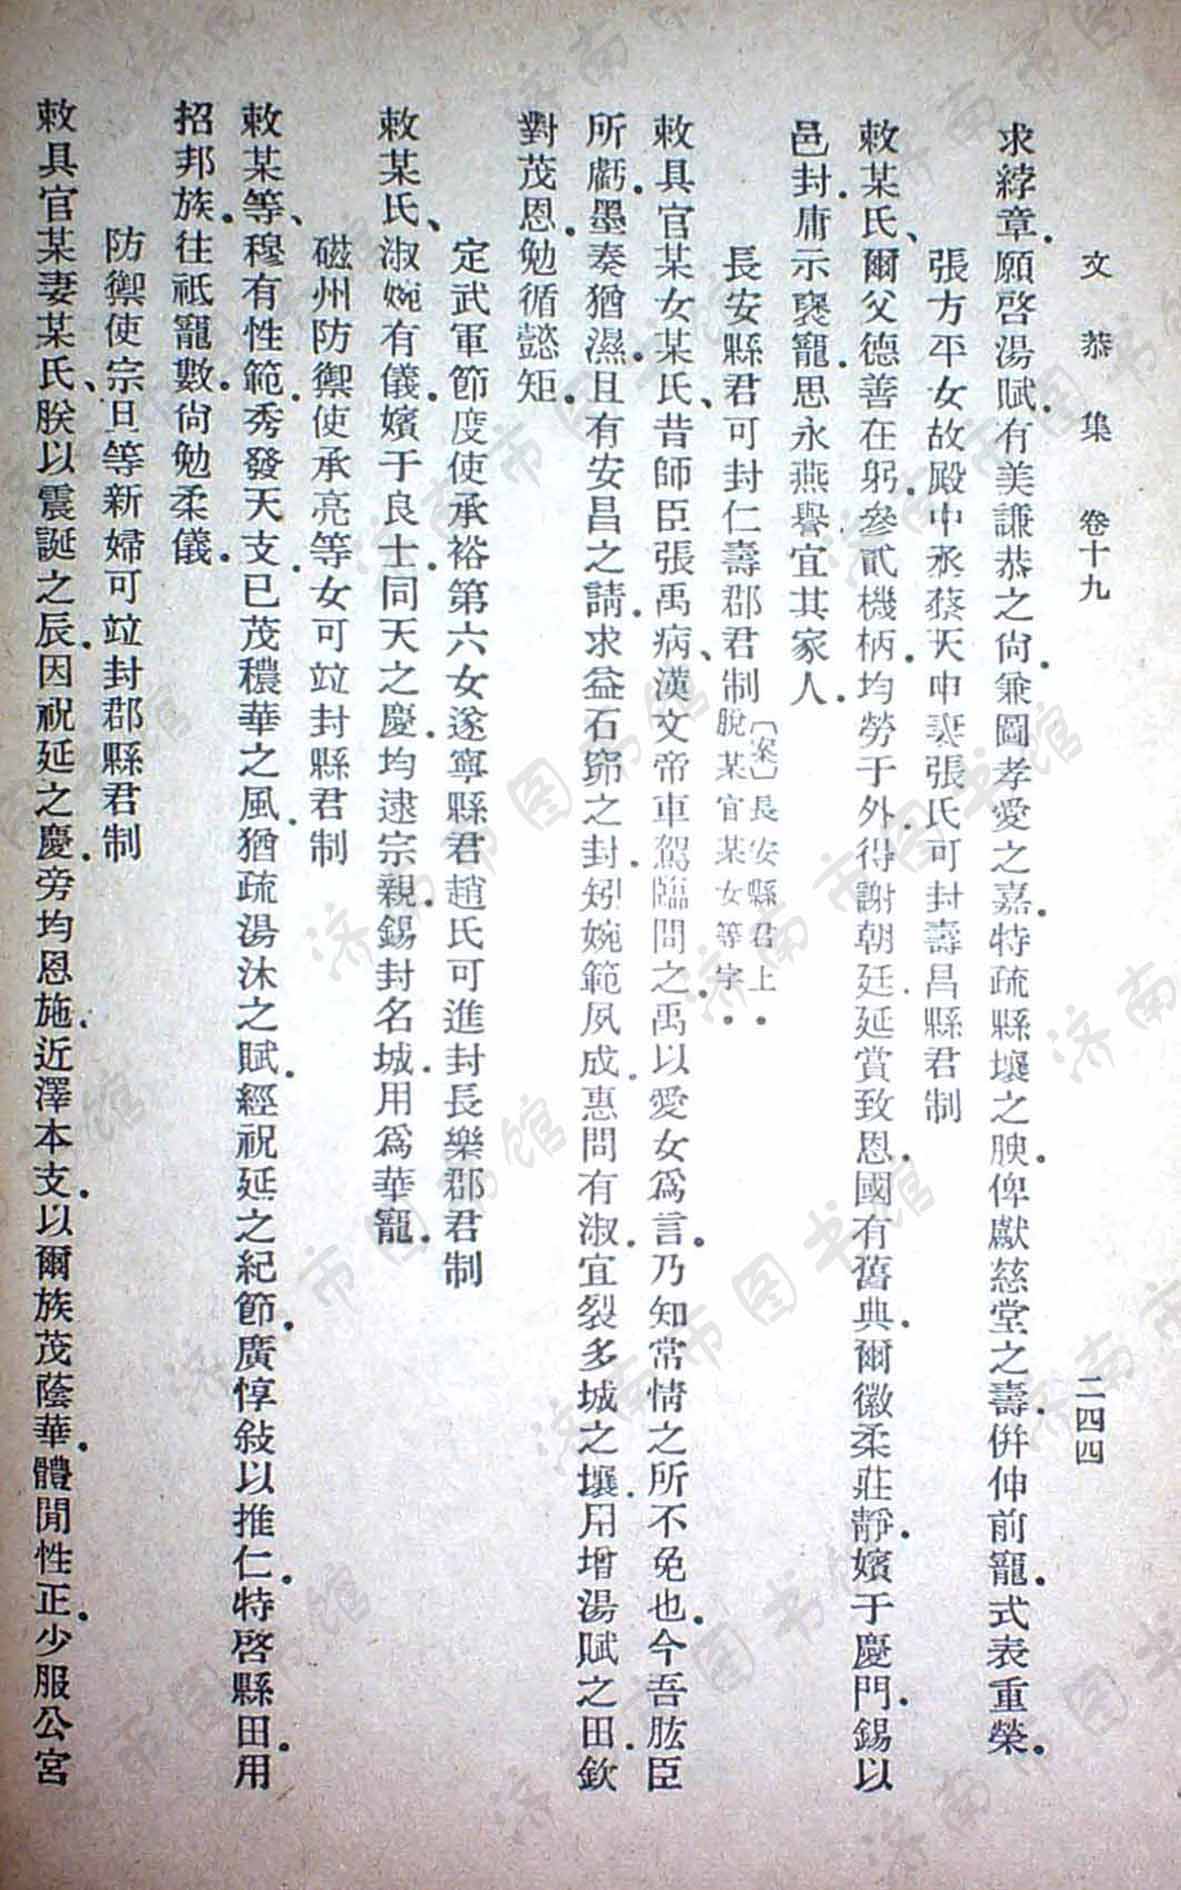 文恭集 卷十九 二四四
求綍章.願啓湯賦.有美謙恭之尙.兼圖孝愛之嘉.特疏縣壤之腴.俾獻慈堂之壽.併伸前寵.式表重榮.
張方平女故殿中丞蔡天申妻張氏可封壽昌縣君制
敕某氏、爾父德善在躬.參貳機柄.均勞于外.得謝朝廷.延賞致恩.國有舊典.爾徽柔莊靜.嬪于慶門.錫以
邑封.庸示褒寵.思永燕譽.宜其家人.
長安縣君可封仁壽郡君制〔案〕長安縣君上脫某官某女等字..
敕具官某女某氏、昔師臣張禹病、漢文帝車駕臨問之.禹以愛女爲言.乃知常情之所不免也.今吾肱臣
所虧.墨奏猶濕.且有安昌之請.求益石窌之封.矧婉範夙成.惠問有淑.宜裂多城之壤.用增湯賦之田.欽
對茂恩.勉循懿矩.
定武軍節度使承裕第六女遂寧縣君趙氏可進封長樂郡君制
敕某氏、淑婉有儀.嬪于良士.同天之慶.均逮宗親.錫封名城.用爲華寵.
磁州防禦使承亮等女可竝封縣君制
敕某等、穆有性範.秀發天支.已茂穠華之風.猶疏湯沐之賦.經祝延之紀節.廣惇敍以推仁.特啓縣田.用
招邦族.往祗寵數.尙勉柔儀.
防禦使宗旦等新婦可竝封郡縣君制
敕具官某妻某氏、朕以震誕之辰.因祝延之慶.旁均恩施.近澤本支.以爾族茂蔭華.體閒性正.少服公宮
济南市图书馆